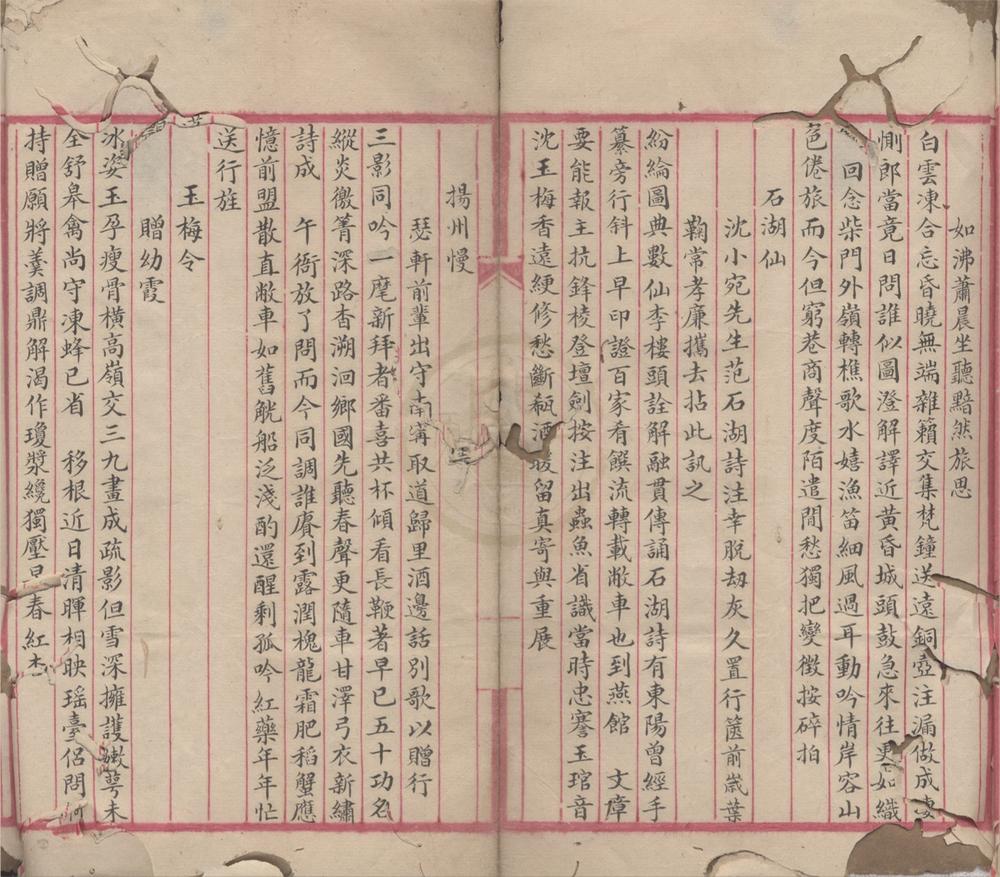 如沸蕭晨坐聽黯然旅思
白雲凍合忘昏曉無端雜籟交集梵鐘送遠銅壺注漏做成淒
惻郎當竟日問誰似圖澄解譯近黃昏城頭鼓急來往更如織
回念柴門外嶺轉樵歌水嬉漁笛細風過耳動吟情岸容山
色倦旅而今但窮巷商聲度陌遣閒愁獨把變徵按碎拍
石湖仙
沈小宛先生范石湖詩注幸脫劫灰久置行篋前歲葉
鞠常孝廉攜去拈此訊之
紛綸圖典數仙李樓頭詮解融貫傳誦石湖詩有東陽曾經手
纂旁行斜上早印證百家看饌流轉載敝車也到燕館 文障
要能報主抗鋒稜登壇劍按注出蟲魚省識當時忠謇玉琯音
沈玉梅香遠綆修愁斷瓻酒暖留真寄與重展
揚州慢
瑟軒前輩出守南甯取道歸里酒邊話別歌以贈行
三影同吟一麾新拜者番喜共杯傾看長鞭著早已五十功名
縱炎徼菁深路杳溯洄鄉國先聽春聲更隨車甘澤弓衣新繡
詩成 午衙放了問而今同調誰賡到露潤槐龍霜肥稻蟹應
憶前盟散直敝車如舊觥船泛淺酌還醒剩孤吟紅藥年年忙
送行旌
玉梅令
贈幼霞
冰姿玉孕瘦骨橫高嶺交三九畫成疏影但雪深擁護嫩萼未
全舒皋禽尚守凍蜂已省 移根近日清暉相映瑤臺侶問
持贈願將羹調鼎解渴作瓊漿纔獨壓春紅杏